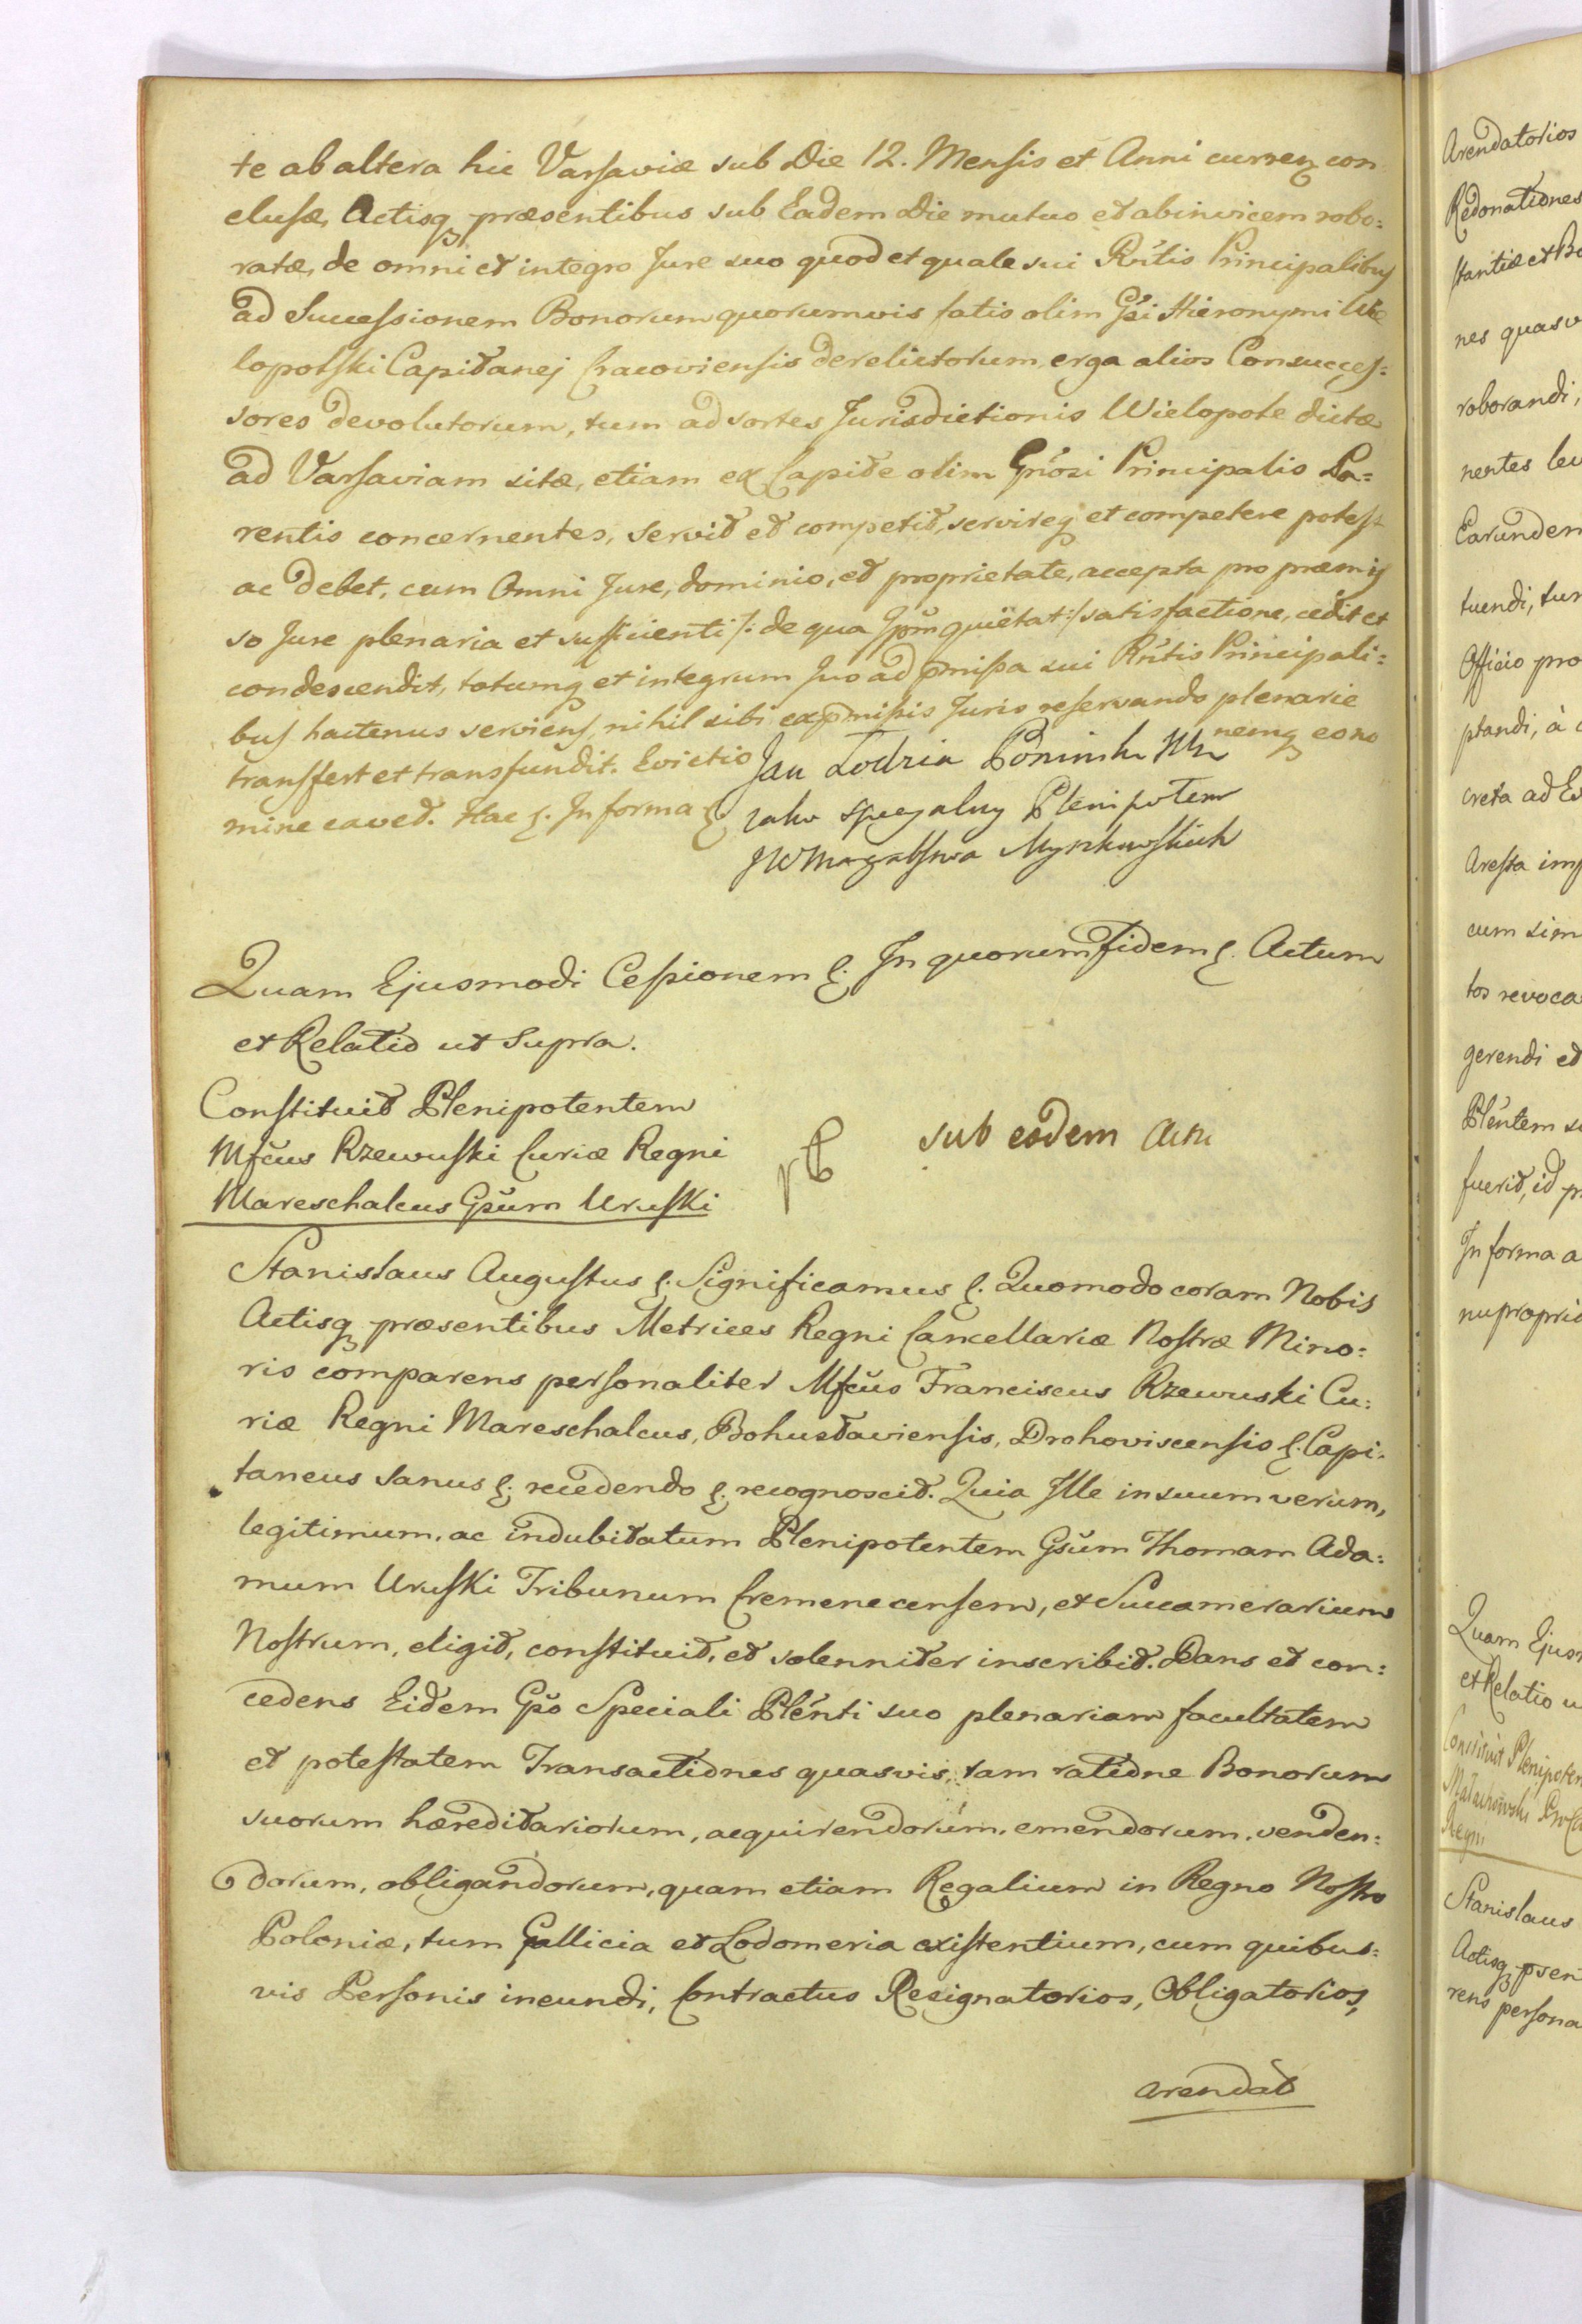 te ab altera hic Varsaviæ sub Die 12. Mensis et Anni curren: con
clusæ, Actisq præsentibus sub Eadem Die mutuo et abinvicem robo:
ratæ, de omni et integro Jure suo quod et quale sui Rñtis Principalibus
ad Successionem Bonorum quorumvis fatis olim Gsi Hieronymi Wie
lopolski Capitanej Cracoviensis derelictorum, erga alios Consucces:
sores devolutorum, tum ad sortes Jurisdictionis Wielopole dictæ
ad Varsaviam sitæ, etiam ex Capite olim Gñosi Principalis Pa:
rentis concernentes, servit et competit, servireq et competere potest
ac debet, cum Omni Jure, dominio, et proprietate, accepta pro præmis
so Jure plenaria et sufficienti /: de qua Ipm quietat :/ satisfactione, cedit et
condescendit, totumq et integrum Jus ad pmissa sui Rñtis Principali:
bus hactenus serviens, nihil sibi ex pmissis Juris reservando plenarie
transfert et transfundit. Evictio
nemq eo no
mine cavet. Hac &. In forma &.
Jan Łodzia Poninski
jako specyalny Plenipotent
JW Margrabstwa Myszkowskich
Quam Ejusmodi Cessionem &. In quorum fidem &. Actum
et Relatio ut Supra.
Constituit Plenipotentem
Mfcus Rzewuski Curiæ Regni
Mareschalcus Gsum Uruski
sub eodem Actu
Stanislaus Augustus &. Significamus &. Quomodo coram Nobis
Actisq præsentibus Metrices Regni Cancellariæ Nostræ Mino:
ris comparens personaliter Mfcus Franciscus Rzewuski Cu:
riæ Regni Mareschalcus, Bohuslaviensis, Drohoviscensis &. Capi:
taneus Sanus &. recedendo &. recognoscit. Quia Ille in suum verum,
legitimum, ac indubitatum Plenipotentem Gsum Thomam Ada:
mum Uruski Tribunum Cremenecensem, et Succamerarium
Nostrum, eligit, constituit, et solenniter inscribit. Dans et con:
cedens Eidem Gso Speciali Plenti suo plenariam facultatem
et potestatem Transactiones quasvis, tam ratione Bonorum
suorum hæreditariorum, acquirendorum, emendorum, venden:
dorum, obligandorum, quam etiam Regalium in Regno Nostro
Poloniæ, tum Gallicia et Lodomeria existentium, cum quibus:
vis Personis ineundi, Contractus Resignatorios, Obligatorios,
arendat
Arendatorios
Redonationes
stantiæ et Bo
nes quasv
roborandi,
nentes lev
Earundem
tuendi, tum
Officio pro
ptandi, à
creta ad Ev
Aresta imp
cum sim
tos revoca
gerendi et
Plentem su
fuerit, id p
In forma a
nu propria
Quam Ejusm
et Relatio u
Constituit Plenipoten
Małachowski
Regni
Stanislaus
Actisq psen
rens persona